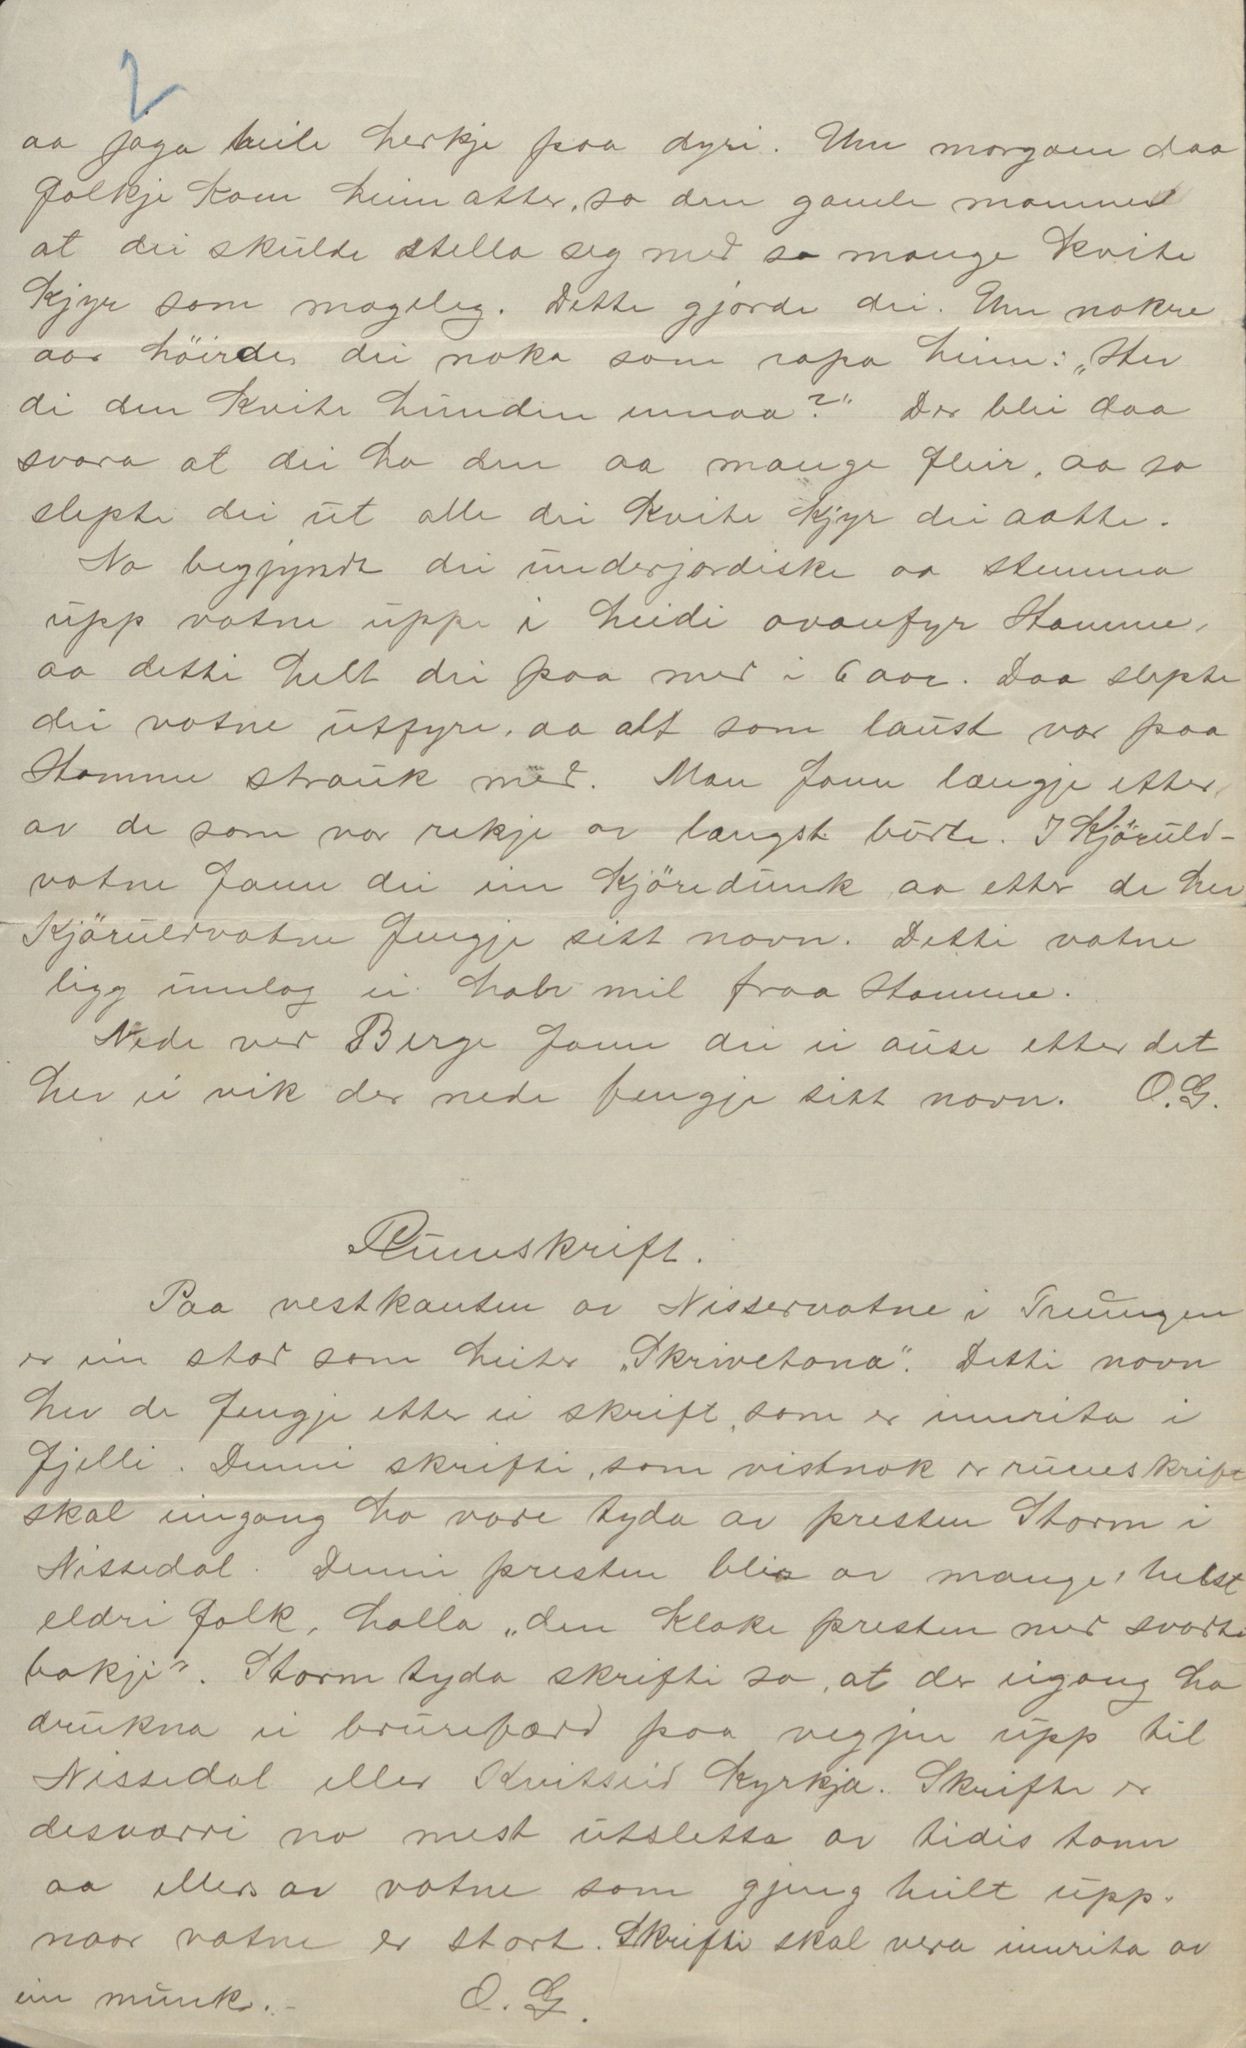 2
aa jaga heile herkje paa dyri. Um morgaen daa
folkje kom heim atter, sa den gamle mannen
at dei skulde stella seg med so mange kvite
kjyr som mogeleg. Dette gjorde dei. Um nokre
aar höirde dei noka som ropa heim: „Hev
di den kvite hunden ennaa?" Der blei daa
svara at dei ha den aa mange fleir, aa so
slepte dei ut alle dei kvite kjyr dei aatte.
No begjynde dei underjordiske aa stemma
upp vatne uppe i heidi ovanfyr Stamme,
aa detti helt dei paa med i 6 aar. Daa slepte
dei vatne utfyre, aa alt som laust var paa
Stamme strauk med. Man fann længje etter
av de som var rekje av langst burte. I Kjöruld-
vatne fann dei ein kjöredunk aa etter de hev
Kjöruldvatne fengje sitt navn. Detti vatne
ligg umlag ei halv mil fraa Stamme.
Nede ved Berge fann dei ei ause etter det
hev ei vik der nede fengje sitt navn. O.G.
Runeskrift.
Paa vestkanten av Nisservatne i Treungen
er ein stad som heiter „Skrivetona". Detti navn
hev de fengje etter ei skrift, som er innrita i
fjelli. Denni skrifti, som vistnok er runeskrift
skal eingong ha vore tyda av presten Storm i
Nissedal. Denni presten bleis av mange, helst
eldri folk, halla „den kloke presten med svarte
bokji". Storm tyda skrifti so, at der eigong ha
drukna ei brureferd paa vegjen upp til
Nissedal eller Kvitseid kyrkja. Skrifte er
desværri no mest utsletta av tidis tonn
aa ellers av vatne som gjeng heilt upp.
naar vatne er stort. Skrifti skal vera innrita av
ein munk.- O. G.